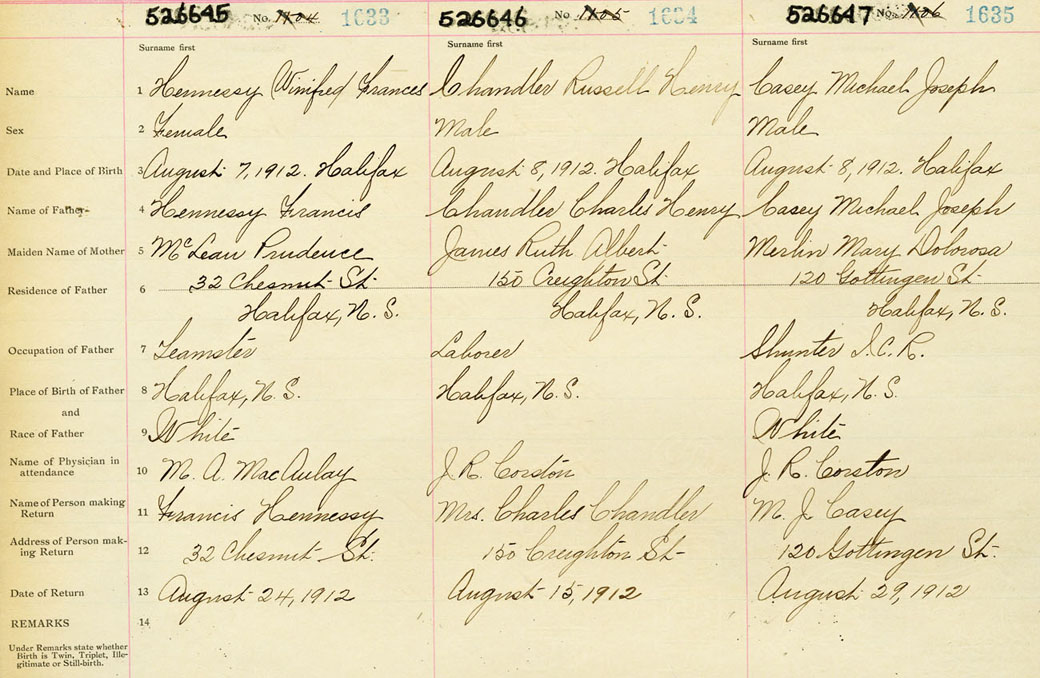 526645 No. 1704 1633 526646 No 1705 1634 526647 No. 1706 1635
Surname first Surname first Surname first
Name 1 Hennessy Winifred Frances Chandler Russell Henry Casey Michael Joseph
Sex 2 Female Male Male
Date and Place of Birth 3 August 7, 1912. Halifax August 8, 1912. Halifax August 8, 1912. Halifax
Name of Father 4 Hennessy Francis Chandler Charles Henry Casey Michael Joseph
Maiden Name of Mother 5 McLean Prudence James Ruth Albert Merlin Mary Dolorosa
Residence of Father 6 32 Chesnut St. 150 Creighton St. 120 Gottingen St.
Halifax, N. S. Halifax, N. S. Halifax, N. S.
Occupation of Father 7 Teamster Laborer Shunter I. C. R.
Place of Birth of Father 8 Halifax, N. S. Halifax, N. S. Halifax, N. S.
and
Race of Father 9 White White
Name of Physician in
attendance 10 M. A. MacAulay J. R. Corston J. R. Corston
Name of Person making
Return 11 Francis Hennessy Mrs. Charles Chandler M. J. Casey
Address of Person mak-
ing Return 12 32 Chesnut St. 150 Creighton St 120 Gottingen St.
Date of Return 13 August 24, 1912 August 15, 1912 August 29, 1912
REMARKS 14
Under Remarks state whether
Birth is Twin, Triplet, Ille-
gitimate or Still-birth.